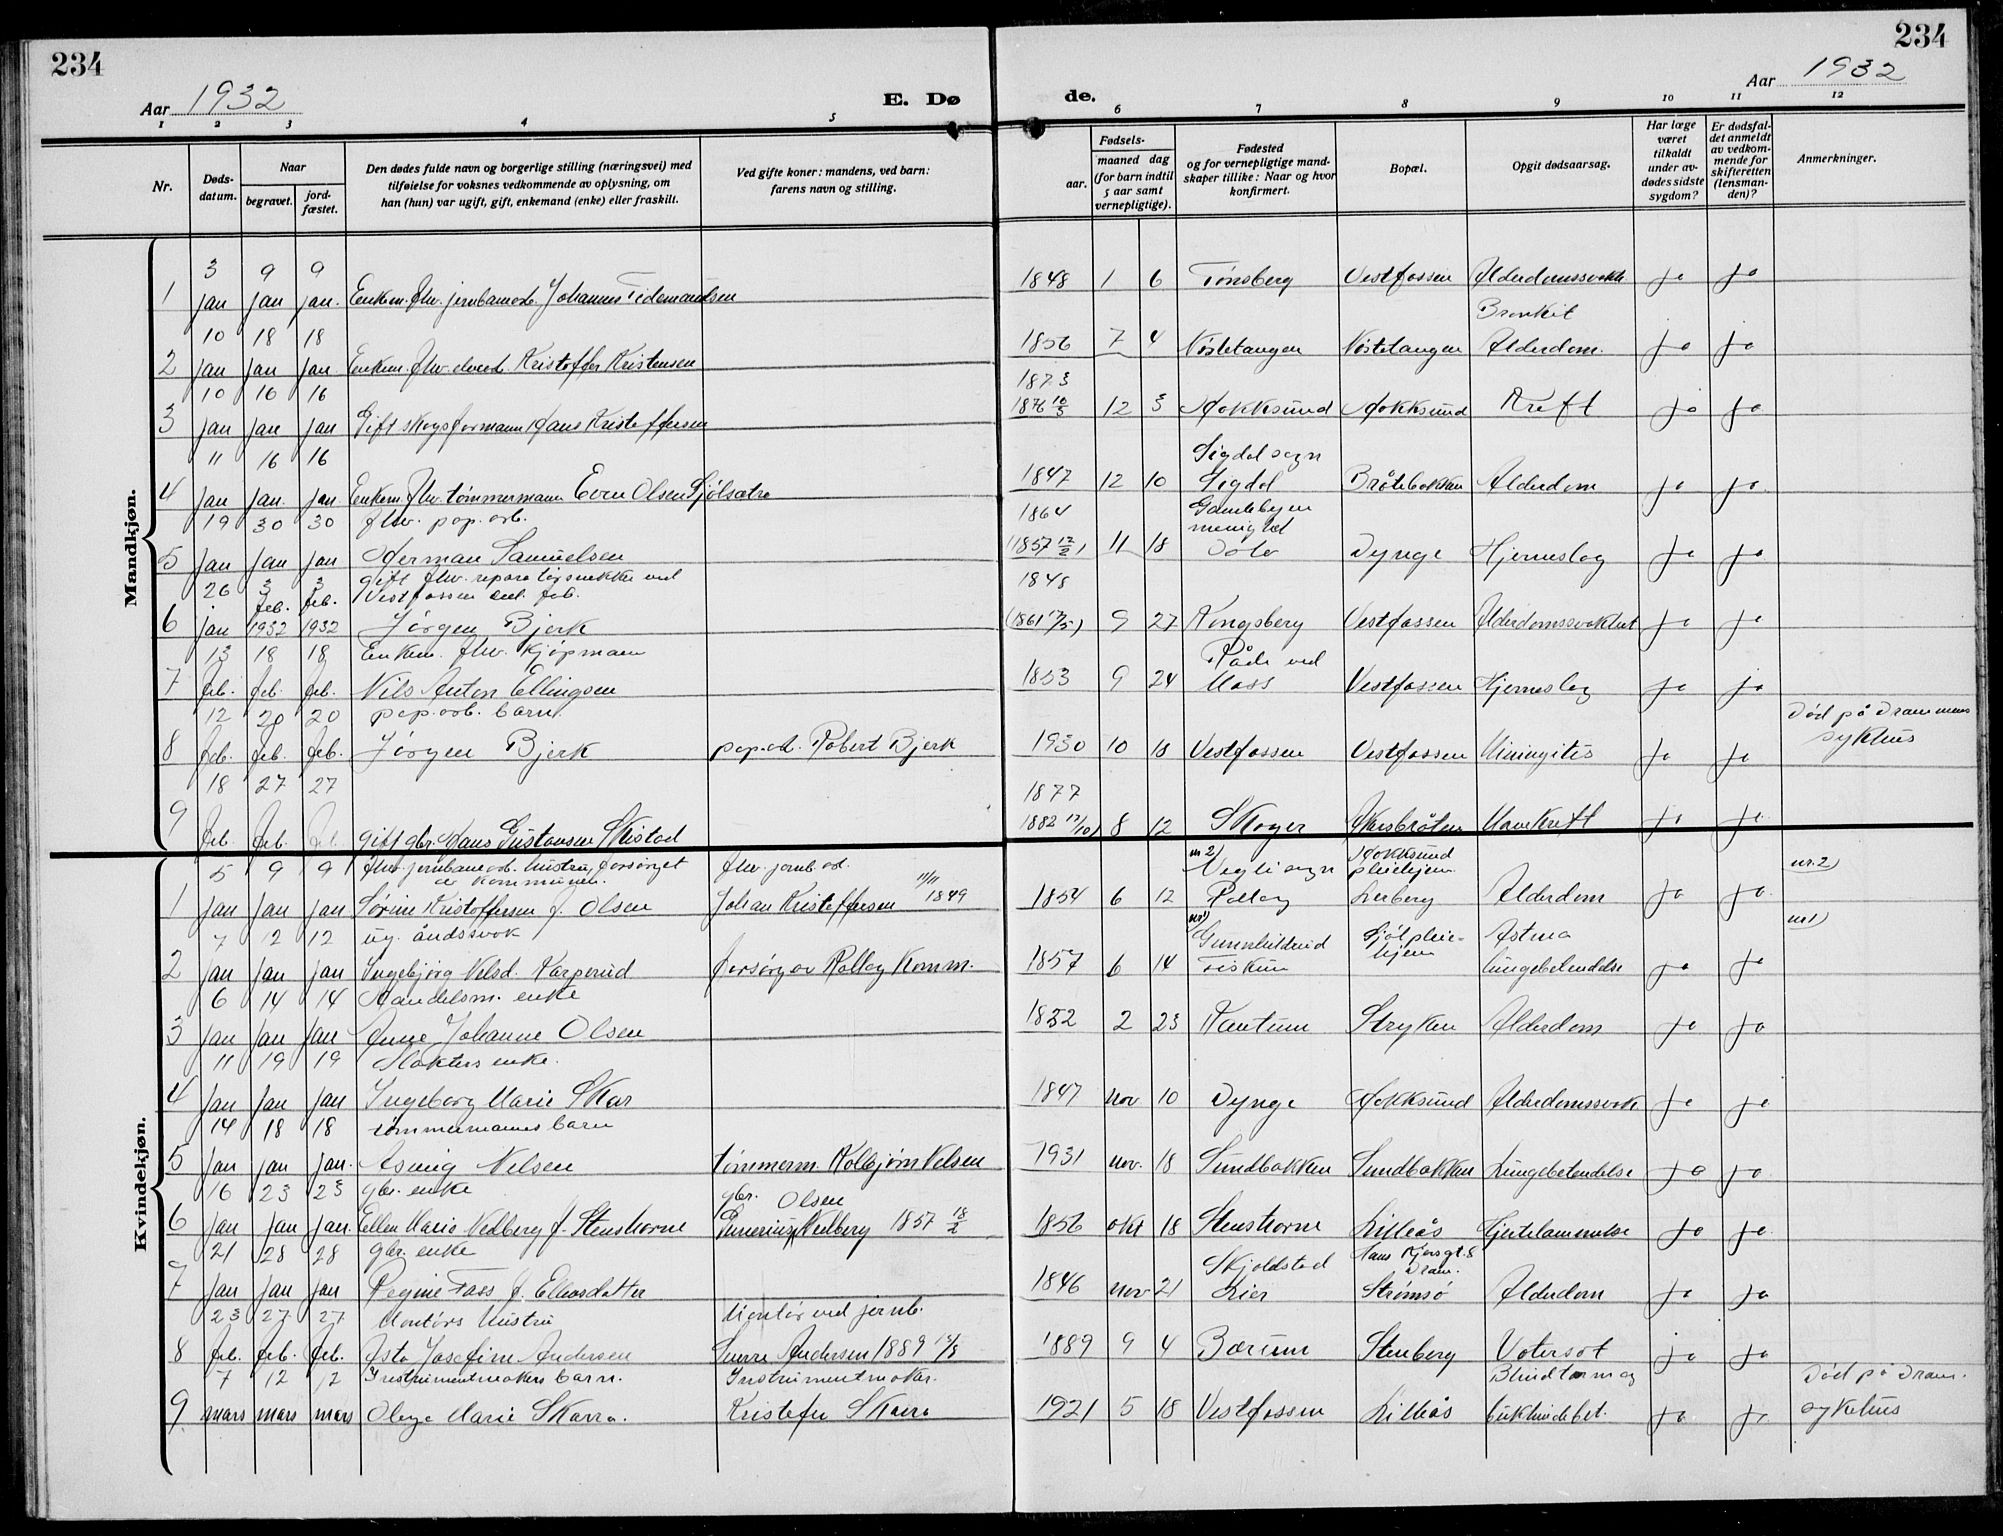 234
234
Aar 1932
E. Dø
de.
Aar 1932
1 2 3 4 5 6 7 8 9 10 11 12
Nr.
Døds-
datum.
Naar
begravet.
jord-
fæstet.
Den dødes fulde navn og borgerlige stilling (næringsvei) med
tilføielse for voksnes vedkommende av oplysning, om
han (hun) var ugift, gift, enkemand (enke) eller fraskilt.
Ved gifte koner: mandens, ved barn:
farens navn og stilling.
Fødsels-
aar.
maaned dag
(for barn indtil
5 aar samt
vernepligtige).
Fødested
og for vernepligtige mand-
skaper tillike: Naar og hvor
konfirmert.
Bopæl.
Opgit dødsaarsag.
Har læge
været
tilkaldt
under av-
dødes sidste
sygdom?
Er dødsfal-
det anmeldt
av vedkom-
mende for
skifteretten
(lensman-
den)?
Anmerkninger.
Mandkjøn.
3 9 9
1 jan jan jan. Enkem. fhv. jernbanearb. Johannes Tidemandsen 1848 1 6 Tønsberg Vestfossen Alderdomssvakh. ja ja
Bronkit
10 18 18
2 jan jan jan. Enkem. fhv. elvearb. Kristoffer Kristensen 1856 7 4 Nøstetangen Nøstetangen Alderdom. ja ja
10 16 16 1873
3 jan jan jan Gift skogsformann Hans Kristoffersen 1876 10/3 12 3 Hokksund Hokksund Kreft ja ja
11 16 16 Sigdal sogn
4 jan jan. jan Enkem. fhv. tømmermann Even Olsen Sjølsætra 1847 12 10 Sigdal Bråtebakken Alderdom ja ja.
19 30 30 fhv. pap. arb. 1864 Gamlebyen
menighed
5 jan jan jan Herman Samuelsen (1857 12/2) 11 18 Oslo Dynge Hjerneslag ja ja
26 3 3 gift fhv. reparatørsnekker ved 1848
feb. feb. Vestfossen cel. fab.
6 jan 1932 1932 Jørgen Bjerk (1861 17/5) 9 27 Kongsberg Vestfossen Alderdomssvakhet ja ja
13 18 18 Enkem. fhv. kjøpmann Råde ved
7 feb. feb. feb. Nils Anton Ellingsen 1853 9 24 Moss Vestfossen Hjerneslag ja ja
12 20 20 pap. arb. barn. Død på Drammens
8 feb. feb. feb. Jørgen Bjerk pap.arb. Robert Bjerk 1930 10 18 Vestfossen Vestfossen Miningites ja ja sykhus
18 27 27 1877
9 feb. feb. feb gift gbr. Hans Gustavsen Skistad 1882 17/10) 8 12 Skoger Avkreft ja ja
Kvindekjøn.
5 9 9 fhv. jernbanearb. hustru, forsørget fhv. jernb. arb. nr 2) Hokksund nr. 2)
av kommunen. 11/11 Vegli sogn pleiehjem
1 jan jan jan Sørine Kristoffersen f. Olsen Johan Kristoffersen 1849 1854 6 12 Rollag Lerberg Alderdom ja ja
7 12 12 ug. åndssvak nr 1) Gunnhildrud Sjøl pleie- Astma nr 1)
hjem
2 jan jan jan Ingebjørg Nelsd. Karperud forsørg av Rollag Komm. 1857 6 14 Fiskum lungebetendelse ja ja
6 14 14 Handelsm. enke
3 jan jan jan Anne Johanne Olsen 1852 2 23 Kantum Stryken Alderdom ja ja
11 19 19 Slakters enke.
4 jan jan jan Ingeborg Marie Skar 1847 nov 10 Dynge Hokksund Alderdomssvakh. ja ja
14 18 18 tømmermannes barn
5 jan jan jan. Asnaug Nelsen tømmerm. Kolbjørn Nelsen 1931 nov. 18 Sundbakken Sundbakken Lungebetendelse ja ja
16 23 23 gbr. enke gbr. Olsen
6 jan jan jan. Ellen Maria Vedberg f. Stenshorne Vedberg 1857 18/2 1856 okt 18 Stenshorne Lilleås Hjertelammelse ja ja.
21 28 28 gbr. enke Skjoldstad Hans Kjærsgt. 8
Dram.
7 jan jan jan Regine Foss f. Ellevsdatter 1846 nov 21 Lier Strømsø Alderdom ja ja
23 27 27 Montørs Hustru Montør ved jernb.
8 feb. feb. feb. Asta Josefine Andersen Sverre Andersen 1889 19/8 1889 9 4 Bærum Stenberg Vatersot ja ja
7 12 12 Instrumentmakers barn. Instrumentmaker. Blindtarm og Død på Dram.
9 mars mars mars Olga Marie Skarra. Kristofer Skarra 1921 5 18 Vestfossen Lilleås bukhindebet. ja ja sykehus